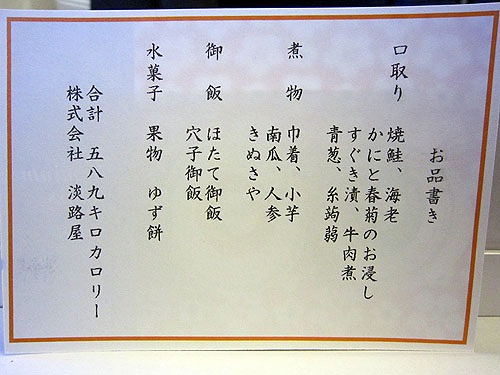 お品書き
口取り 焼鮭、海老
かにと春菊のお浸し
すぐき漬、牛肉煮
青葱、糸蒟蒻
煮物 巾着、小芋
南瓜、人参
きぬさや
御飯 ほたて御飯
穴子御飯
水菓子 果物 ゆず餅
合計 五八九キロカロリー
株式会社 淡路屋